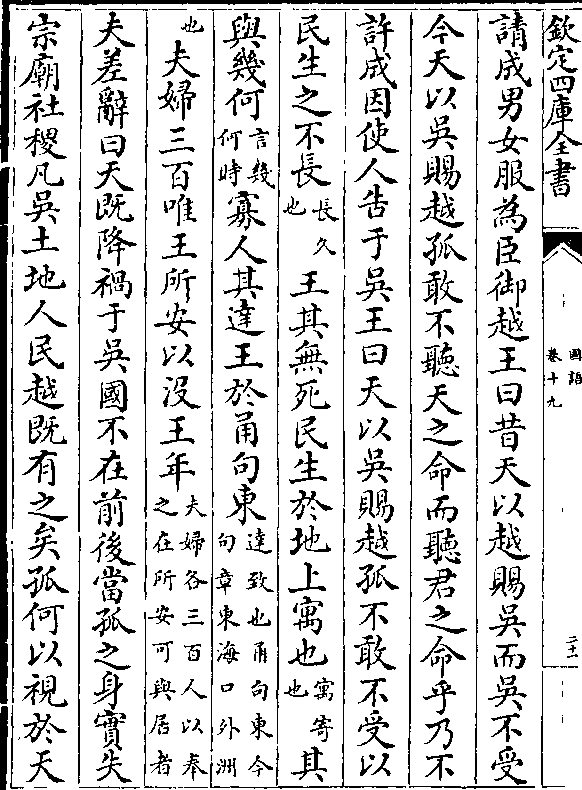 欽定四庫全書
國語
卷十九
二十一
請成男女服為臣御越王曰昔天以越賜吳而吳不受
今天以吳賜越孤敢不聽天之命而聽君之命乎乃不
許成因使人告于吳王曰天以吳賜越孤不敢不受以
民生之不長長久也王其無死民生於地上寓也寓寄也其
與幾何言幾何時寡人其達王於甬句東達致也甬句東今句章東海口外洲
也夫婦三百唯王所安以沒王年夫婦各三百人以奉之在所安可與居者
夫差辭曰天既降禍于吳國不在前後當孤之身實失
宗廟社稷凡吳土地人民越既有之矣孤何以視於天